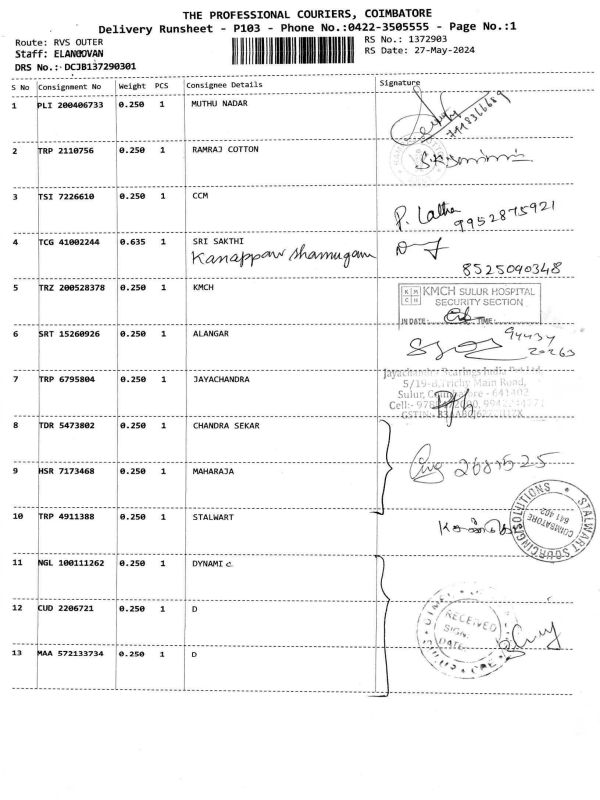 THE PROFESSIONAL COURIERS, COIMBATORE
Delivery Runsheet - P103 - Phone No.:0422-3505555 - Page No.:1
Route: RVS OUTER
RS No.: 1372903
Staff: ELANGOVAN
RS Date: 27-May-2024
DRS No.: DCJB137290301
S No Consignment No Weight PCS Consignee Details Signature
1 PLI 200406733 0.250 1 MUTHU NADAR
2 TRP 2110756 0.250 1 RAMRAJ COTTON
3 TSI 7226610 0.250 1 CCM
P. Latha
9952875921
4 TCG 41002244 0.635 1 SRI SAKTHI
Kanappan Shamugam
8525090348
5 TRZ 200528378 0.250 1 KMCH
KMCH SULUR HOSPITAL
SECURITY SECTION
IN DATE: TIME:
6 SRT 15260926 0.250 1 ALANGAR
94437
20263
7 TRP 6795804 0.250 1 JAYACHANDRA
Jayachandra Bearings India Pvt Ltd
Trichy Main Road,
Sulur, Coimbatore - 641402
8 TDR 5473802 0.250 1 CHANDRA SEKAR
9 HSR 7173468 0.250 1 MAHARAJA
10 TRP 4911388 0.250 1 STALWART
STALWART SOURCING SOLUTIONS
COIMBATORE
641 402
11 NGL 100111262 0.250 1 DYNAMIC
12 CUD 2206721 0.250 1 D
RECEIVED
SIGN.
DATE
13 MAA 572133734 0.250 1 D